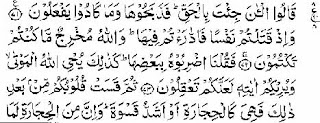 قَالُوا الْـٰٔنَ جِئْتَ بِالْحَقِّ فَذَبَحُوهَا وَمَا كَادُوا يَفْعَلُونَ ٧١
وَإِذْ قَتَلْتُمْ نَفْسًا فَادَّٰرَءْتُمْ فِيهَا وَاللَّهُ مُخْرِجٌ مَّا كُنْتُمْ
تَكْتُمُونَ ٧٢ فَقُلْنَا اضْرِبُوهُ بِبَعْضِهَا كَذَٰلِكَ يُحْيِ اللَّهُ الْمَوْتَىٰ
وَيُرِيكُمْ اٰيٰتِهِ لَعَلَّكُمْ تَعْقِلُونَ ٧٣ ثُمَّ قَسَتْ قُلُوبُكُمْ مِّنْ بَعْدِ
ذَٰلِكَ فَهِيَ كَالْحِجَارَةِ أَوْ أَشَدُّ قَسْوَةً وَإِنَّ مِنَ الْحِجَارَةِ لَمَا